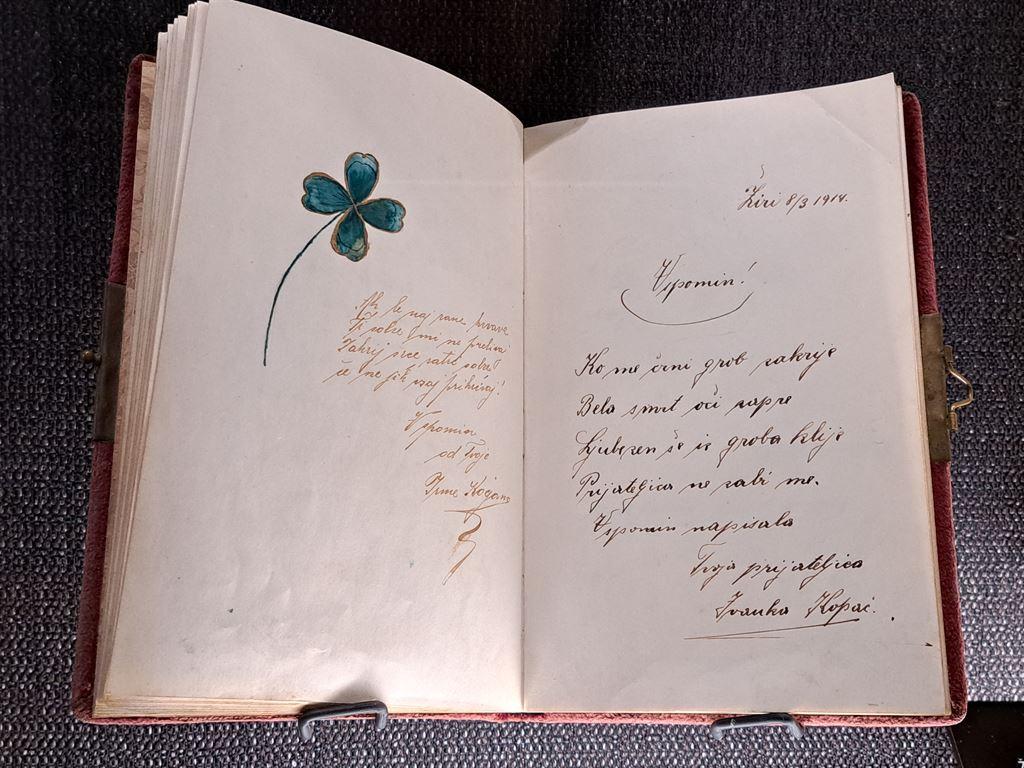 Ak le naj rane krvave
Ti solze mi ne prelivaj
Zakrij srce
če ne jih vsaj prikrivaj!
Vspomin
od Tvoje
Irme
Žiri 8/3 1914.
Vspomin!
Ko me črni grob zakrije
Bela smrt oči zapre
Ljubezen še iz groba klije
Prijateljica ne zabi me.
Vspomin napisala
Tvoja prijateljica
Ivanka Kopač.